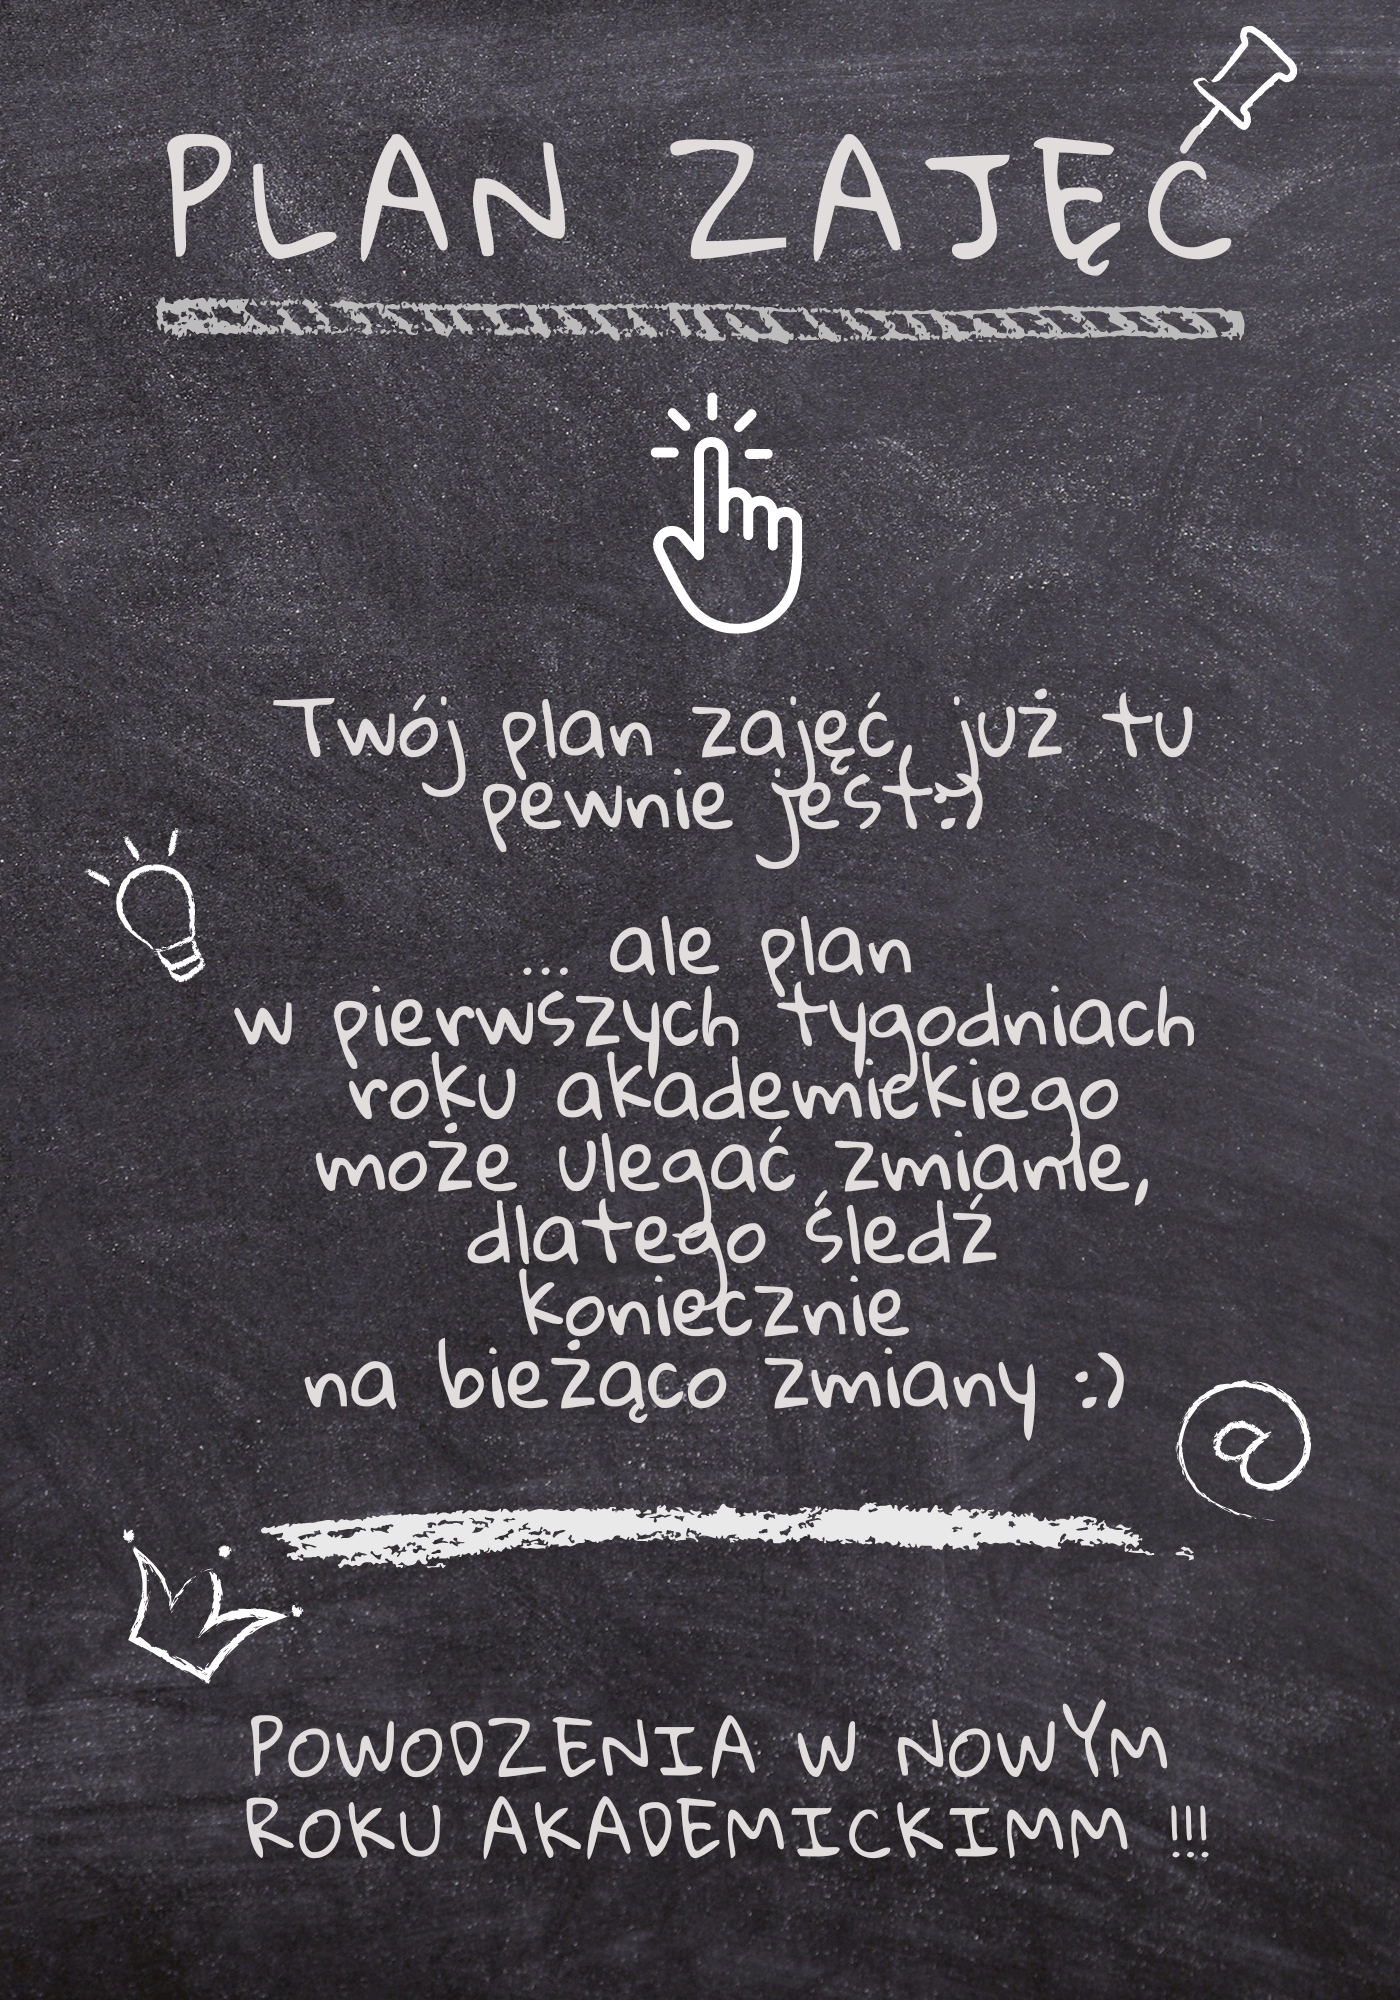 PLAN ZAJĘĆ
Twój plan zajęć, już tu
pewnie jest:)
... ale plan
w pierwszych tygodniach
roku akademickiego
może ulegać zmianie,
dlatego śledź
koniecznie
na bieżąco zmiany :)
@
POWODZENIA W NOWYM
ROKU AKADEMICKIMM !!!